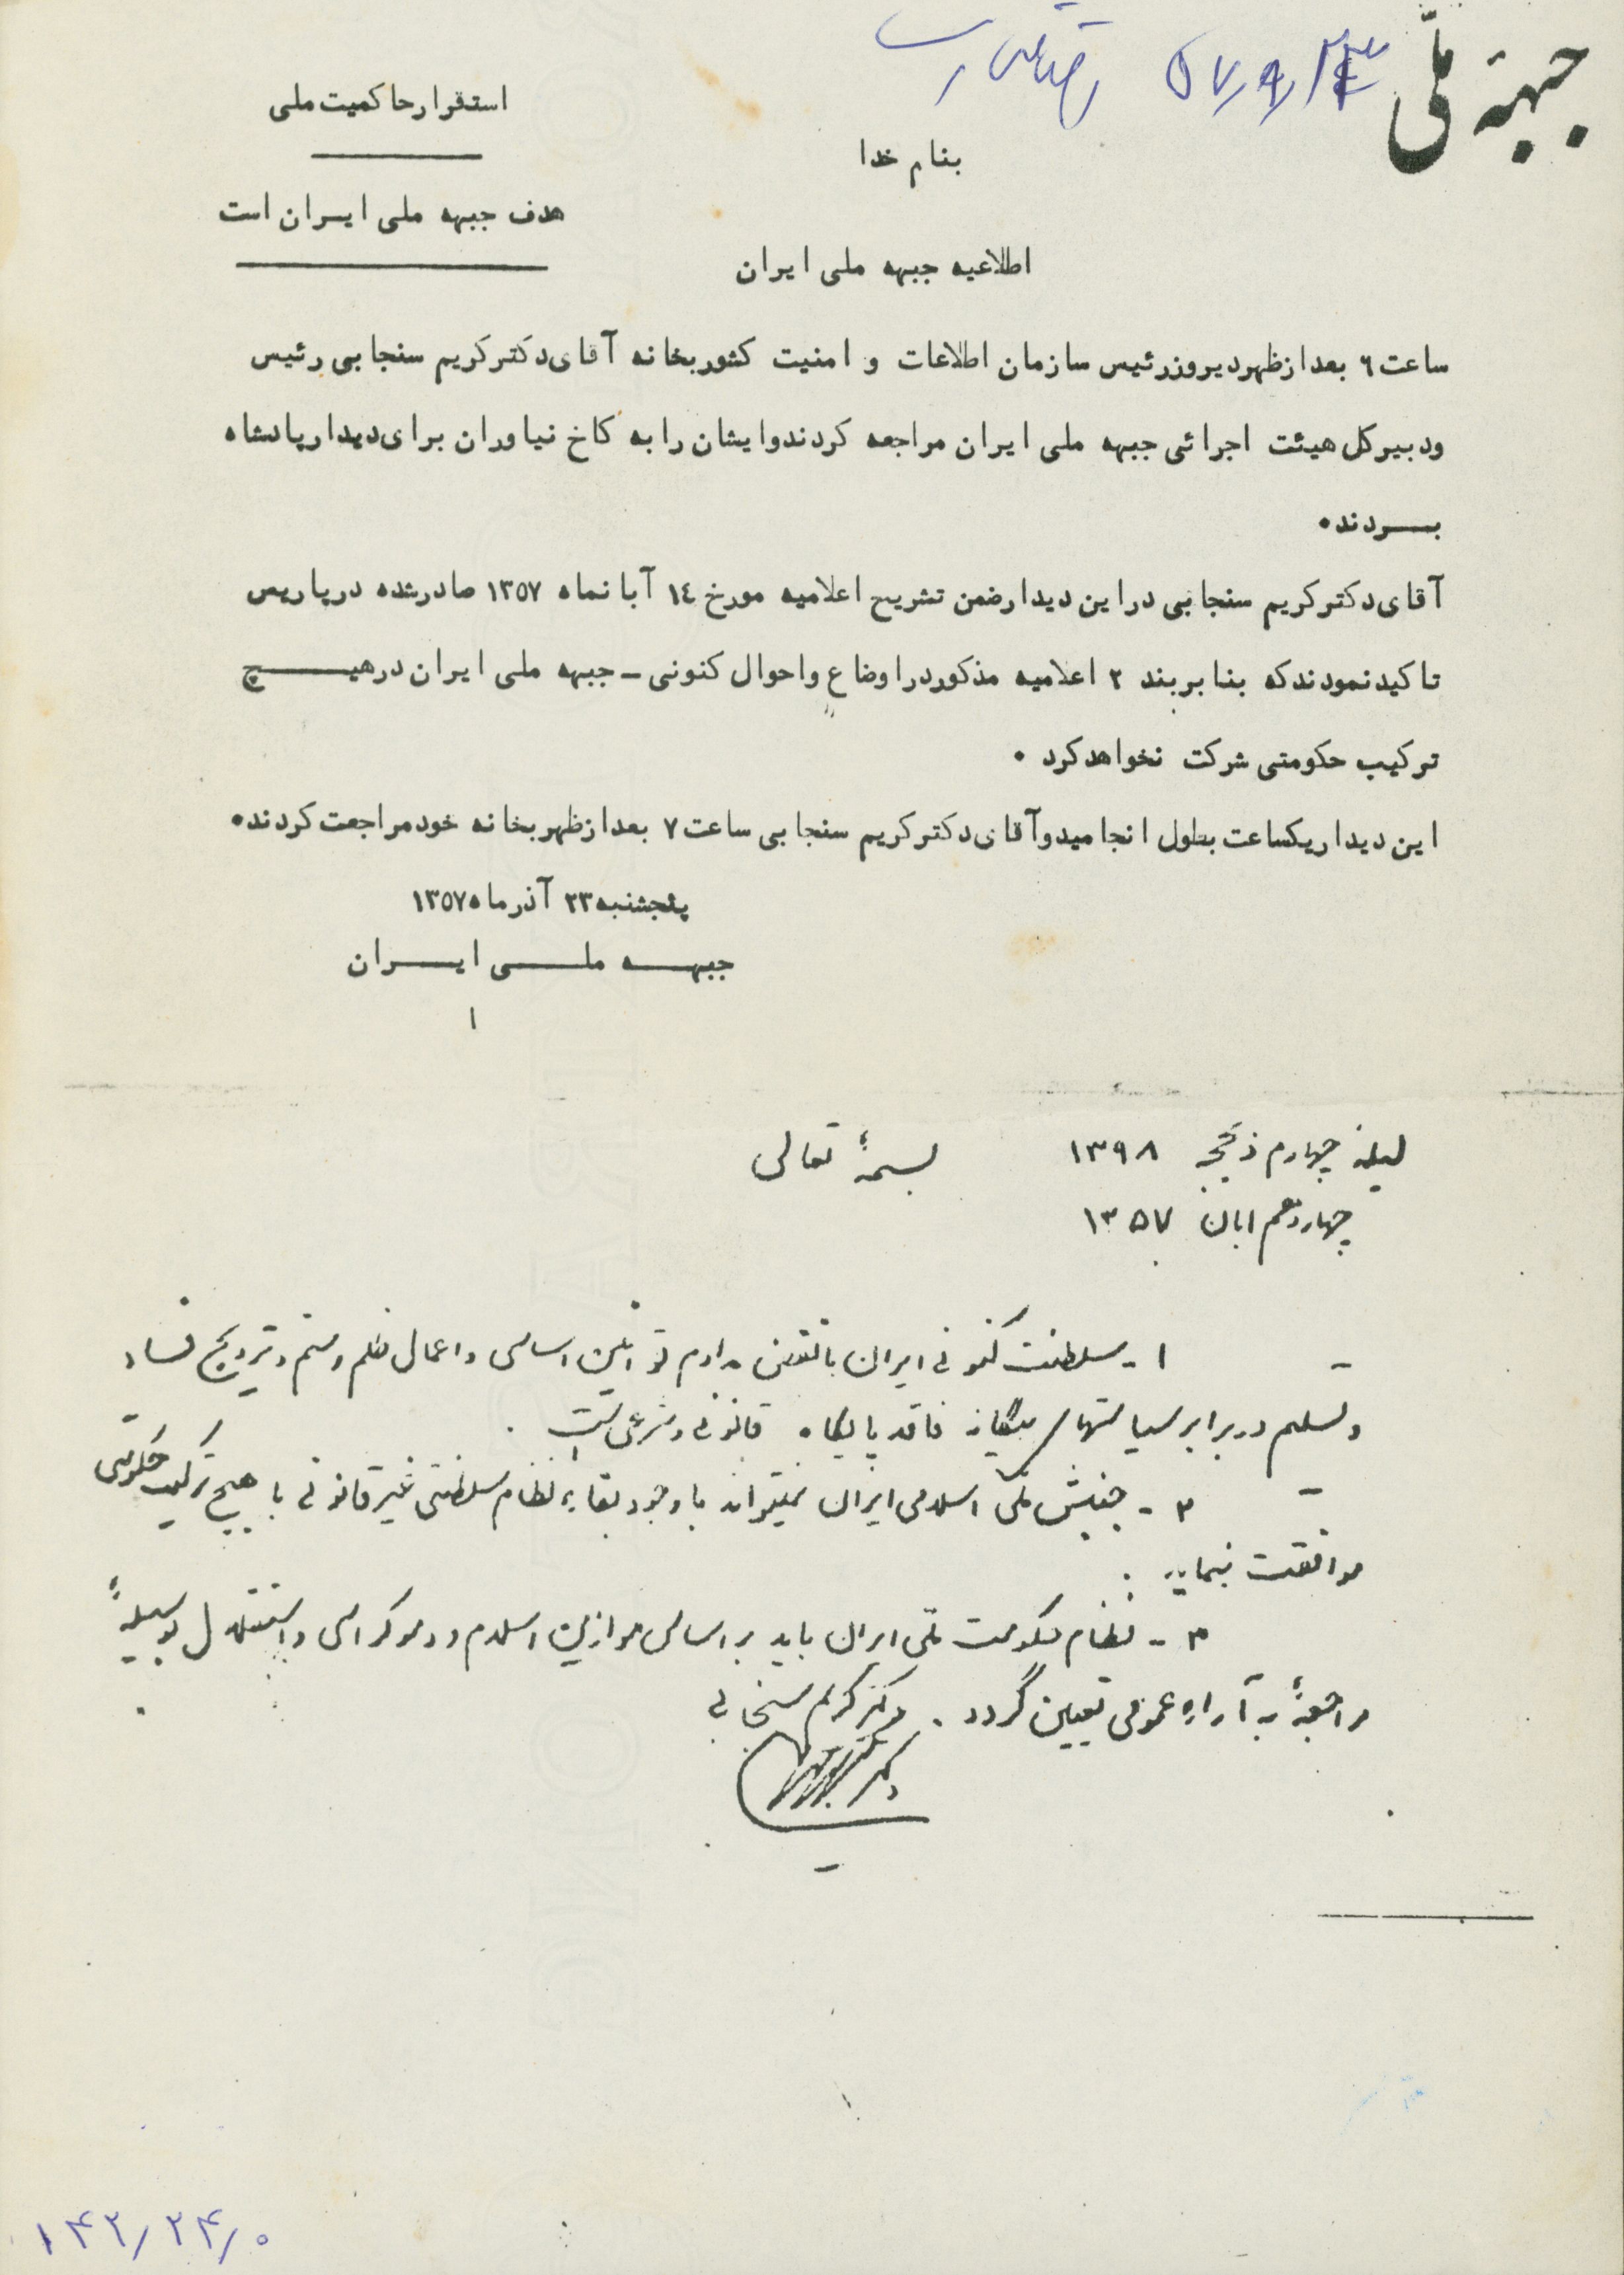 جبههٔ ملّی
۵۷/۹/۲۳
استقرار حاکمیت ملی
هدف جبهه ملی ایــران است
بنام خدا
اطلاعیه جبهه ملی ایران
ساعت ٦ بعد از ظهر دیروز رئیس سازمان اطلاعات و امنیت کشور بخانه آقای دکتر کریم سنجابی رئیس
ودبیر کل هیئت اجرائی جبهه ملی ایران مراجعه کردند وایشان را به کاخ نیاوران برای دیدار پادشاه
بــردند.
آقای دکتر کریم سنجابی در این دیدار ضمن تشریح اعلامیه مورخ ١٤ آبانماه ١٣٥٧ صادر شده در پاریس
تاکید نمودند که بنا بر بند ٢ اعلامیه مذکور در اوضاع و احوال کنونی ـ جبهه ملی ایران در هیــــچ
ترکیب حکومتی شرکت نخواهد کرد .
این دیدار یکساعت بطول انجامید و آقای دکتر کریم سنجابی ساعت ٧ بعد از ظهر بخانه خود مراجعت کردند.
پنجشنبه ٢٣ آذرماه ١٣٥٧
جبهــه ملــی ایــران
لیله چهارم ذیحجه ۱۳۹۸
بسمهٔ تعالی
چهاردهم ابان ۱۳۵۷
۱ - سلطنت کنونی ایران با نقض مداوم قوانین اساسی و اعمال ظلم و ستم و ترویج فساد
و تسلیم در برابر سیاستهای بیگانه فاقد پایگاه قانونی و شرعی است .
۲ - جنبش ملی اسلامی ایران نمیتواند با وجود بقاء نظام سلطنتی غیر قانونی با هیچ ترکیب حکومتی
موافقت نماید .
۳ - نظام حکومت ملی ایران باید بر اساس موازین اسلام و دموکراسی و استقلال بوسیلهٔ
مراجعهٔ به آراء عمومی تعیین گردد . دکتر کریم سنجابی
۱۴۲/۲۴/۰